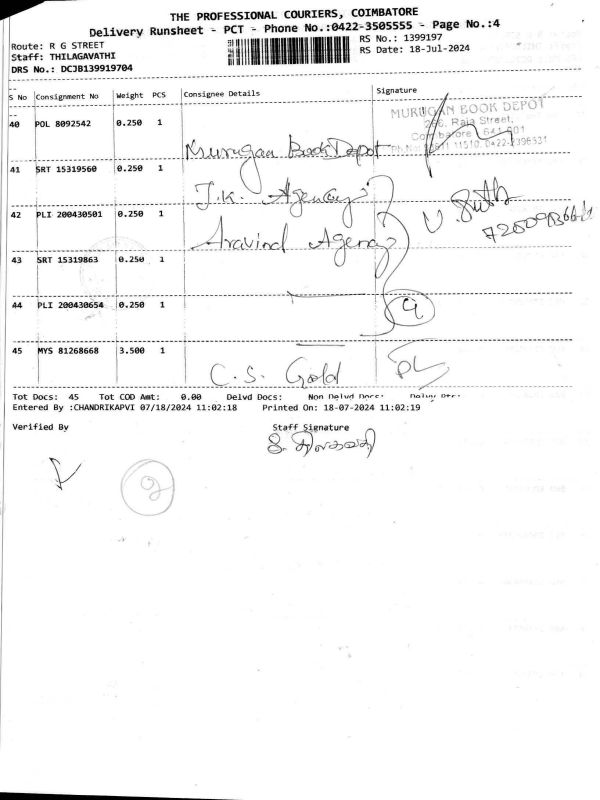 THE PROFESSIONAL COURIERS, COIMBATORE
Delivery Runsheet - PCT - Phone No.:0422-3505555 - Page No.:4
Route: R G STREET
RS No.: 1399197
Staff: THILAGAVATHI
RS Date: 18-Jul-2024
DRS No.: DCJB139919704
S No Consignment No Weight PCS Consignee Details Signature
40 POL 8092542 0.250 1
MURUGAN BOOK DEPOT
Raja Street,
Murugan Book Depot
41 SRT 15319560 0.250 1
J.K. Agency
42 PLI 200430501 0.250 1
Aravind Agency
43 SRT 15319863 0.250 1
44 PLI 200430654 0.250 1
45 MYS 81268668 3.500 1
C.S. Gold
Tot Docs: 45 Tot COD Amt: 0.00 Delvd Docs: Non Delvd Docs:
Entered By :CHANDRIKAPVI 07/18/2024 11:02:18 Printed On: 18-07-2024 11:02:19
Verified By Staff Signature